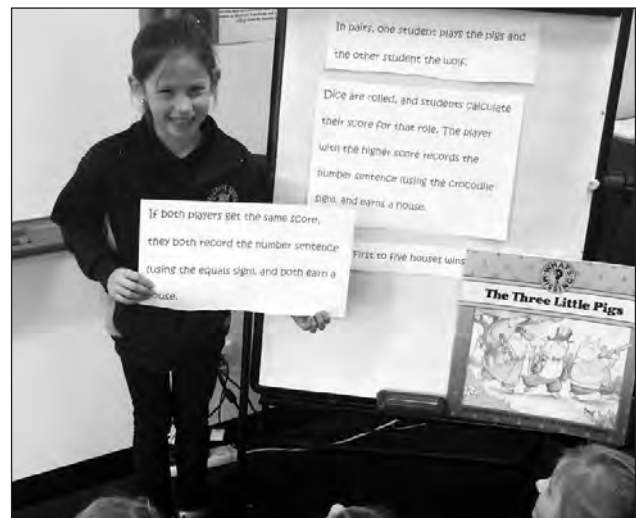 In pairs, one student plays the pigs and
the other student the wolf.
Dice are rolled, and students calculate
their score for that role. The player
with the higher score records the
number sentence (using the crocodile
sign), and earns a house.
If both players get the same score,
they both record the number sentence
(using the equals sign), and both earn a
house.
First to five houses wins
WHAT'S
The Three Little Pigs